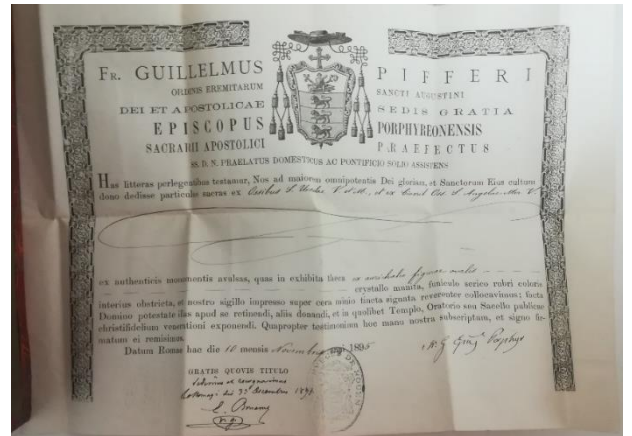 FR. GUILLELMUS PIFFERI
ORDINIS EREMITARUM SANCTI AUGUSTINI
DEI ET APOSTOLICAE SEDIS GRATIA
EPISCOPUS PORPHYREONENSIS
SACRARII APOSTOLICI PRAEFECTUS
SS. D. N. PRAELATUS DOMESTICUS AC PONTIFICIO SOLIO ASSISTENS
Has litteras perlegentibus testamur, Nos ad maiorem omnipotentis Dei gloriam, et Sanctorum Eius cultum
dono dedisse particulas sacras ex Ossibus S. Ursulae V. et M., et ex S. Angelae V.
ex authenticis monumentis avulsas, quas in exhibita theca figurae ovalis
crystallo munita, funiculo serico rubri coloris
interius obstricta, et nostro sigillo impresso super cera minio tincta signata reverenter collocavimus; facta
Domino potestate illas apud se retinendi, aliis donandi, et in quolibet Templo, Oratorio seu Sacello publicae
christifidelium venerationi exponendi. Quapropter testimonium hoc manu nostra subscriptam, et signo fir-
matum ei remisimus.
Datum Romae hac die 10 mensis Novembris 1895
GRATIS QUOVIS TITULO